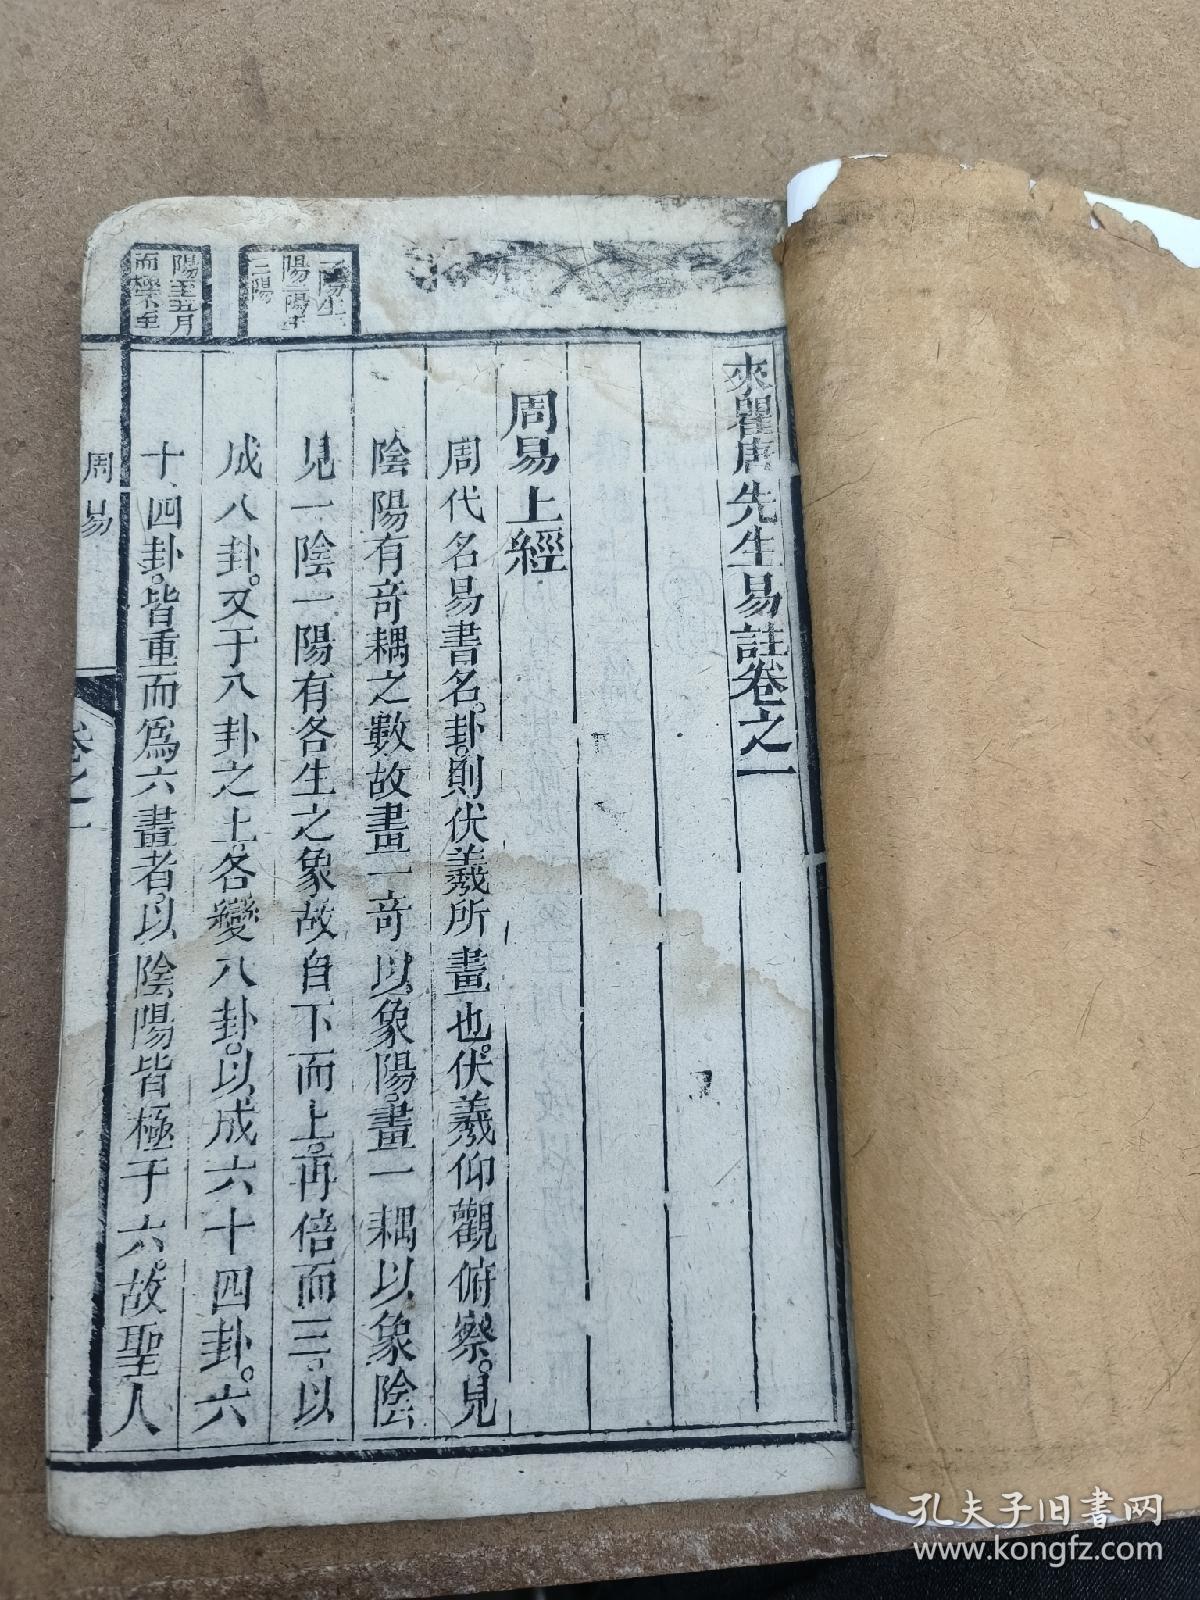 來瞿唐先生易註卷之一
周易上經
周代名易書名卦則伏羲所畫也伏羲仰觀俯察見
陰陽有奇耦之數故畫一奇以象陽畫一耦以象陰
見一陰一陽有各生之象故自下而上再倍而三以
成八卦又于八卦之上各變八卦以成六十四卦六
十四卦皆重而爲六畫者以陰陽皆極于六故聖人
陽至五月
而極下至
周易
卷之一
孔夫子旧书网
www.kongfz.com